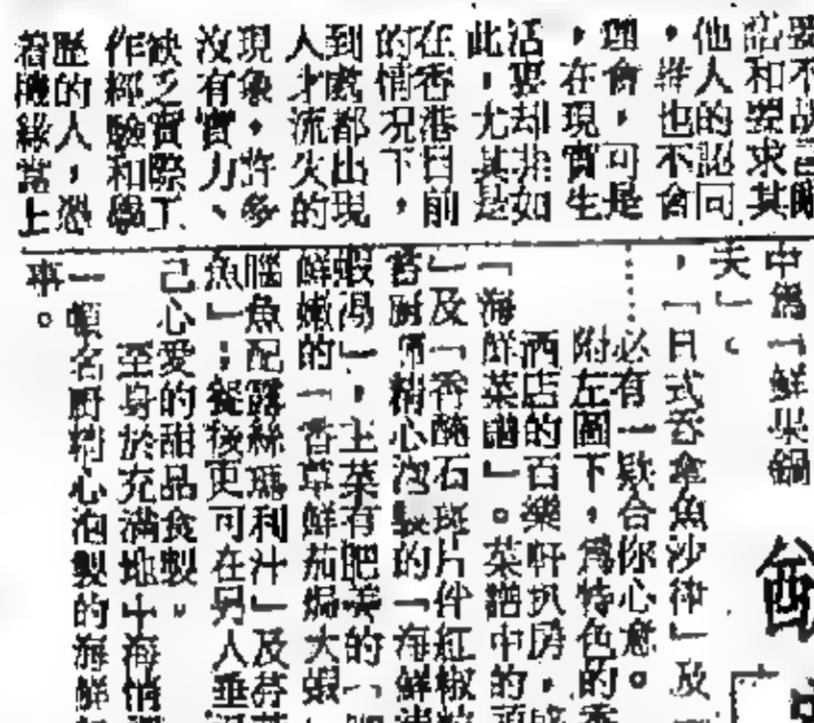 語和要求其
他人的認同
，誰也不會
理會，可是
，在現實生
活裏却非如
此，尤其是
在香港目前
的情況下，
到處都出現
人才流失的
現象，許多
沒有實力、
缺乏實際工
作經驗和學
歷的人，憑
着機緣當上
中為「鮮果鍋
夫」。
，「日式吞拿魚沙律」及
……必有一款合你心意。
附左圖下，為特色的
酒店的百樂軒扒房，
「海鮮菜譜」。菜譜中的
」及「香醃石斑片伴紅椒
著廚師精心泡製的「海鮮
蝦湯」，主菜有肥美的「
鮮嫩的「香草鮮茄焗大蝦
魚配露絲瑪利汁」及
魚」；餐後更可在另人垂
己心愛的甜品食製。
至身於充滿地中海情
一頓名廚精心泡製的海鮮
事。